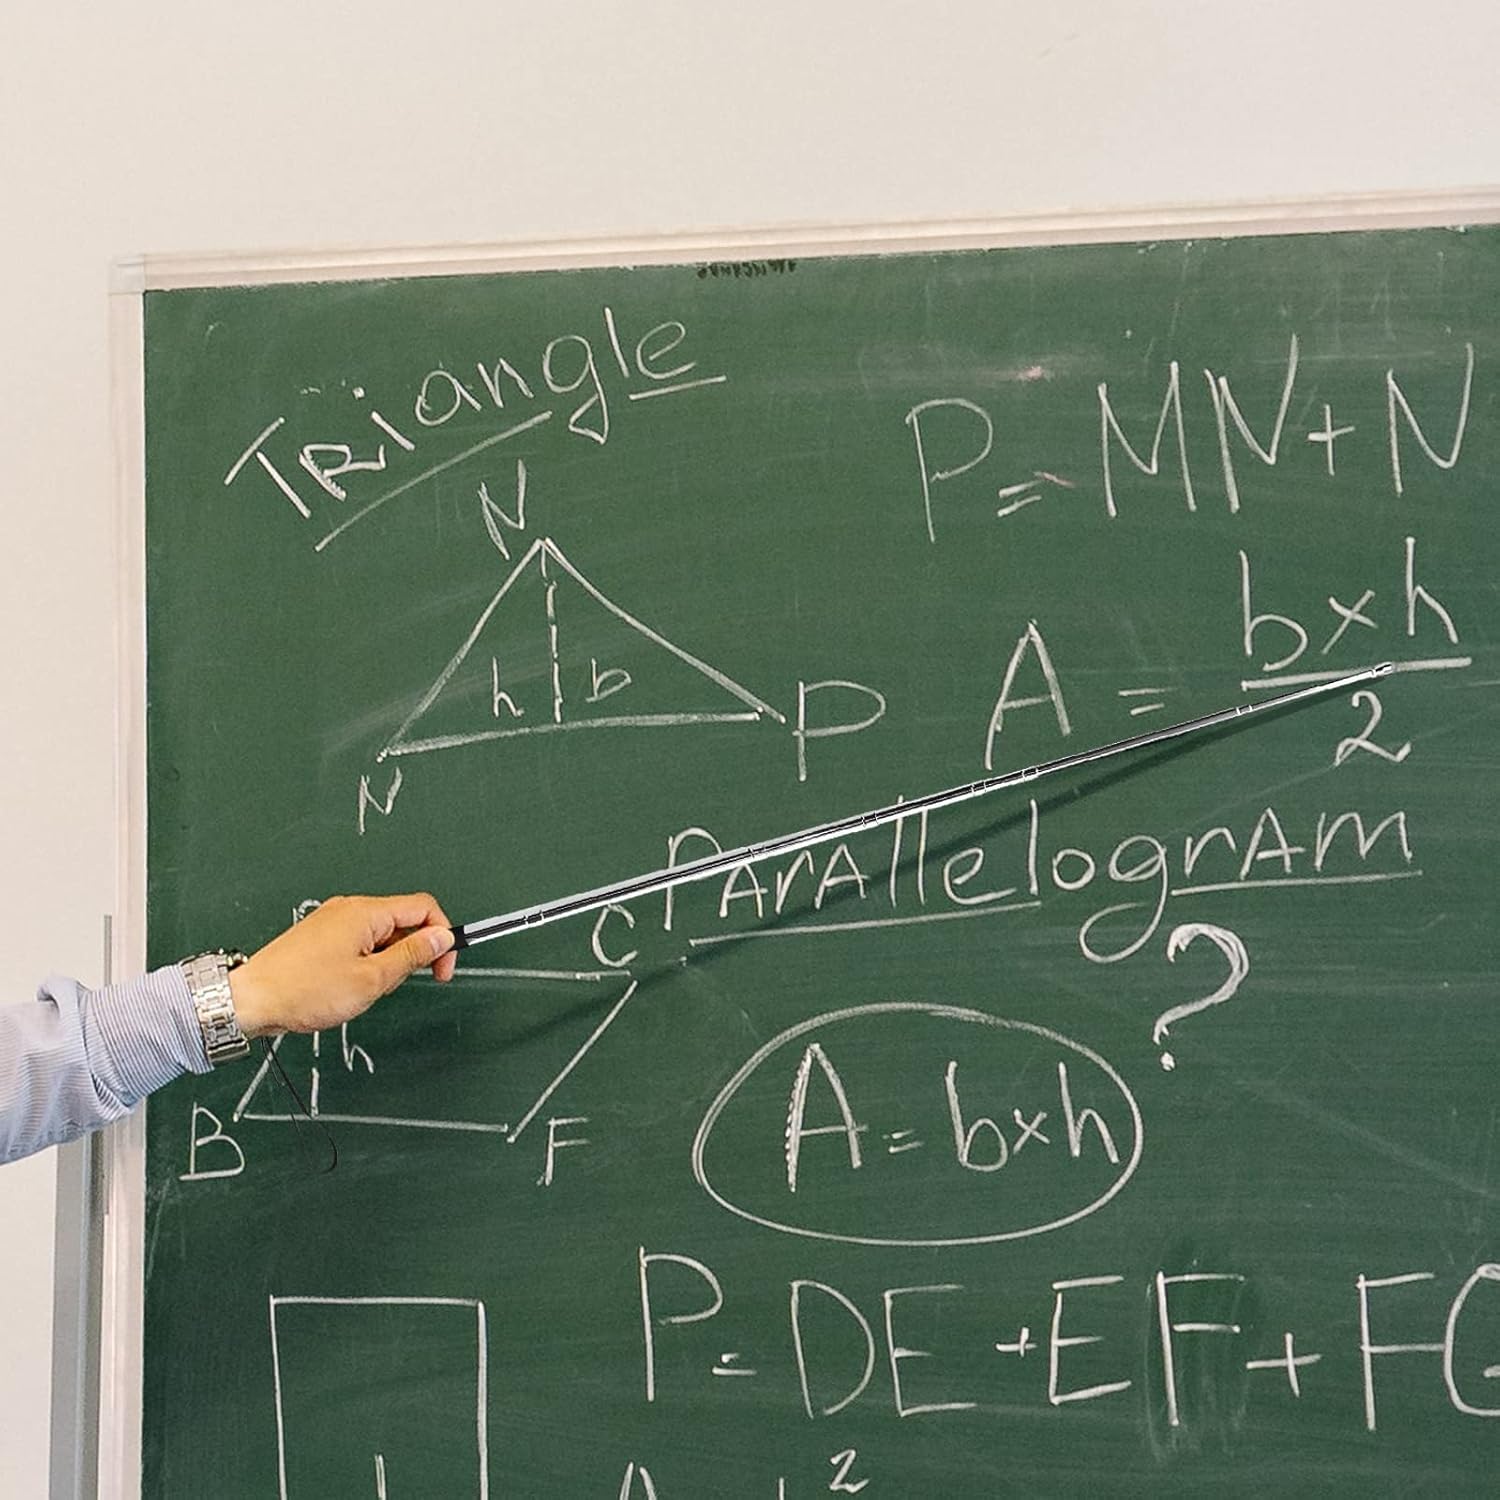 Triangle
P = MN + N
N
h b
N
P
A = b x h
2
Parallelogram
?
C
h
B
F
A = b x h
P = DE + EF + FG
2